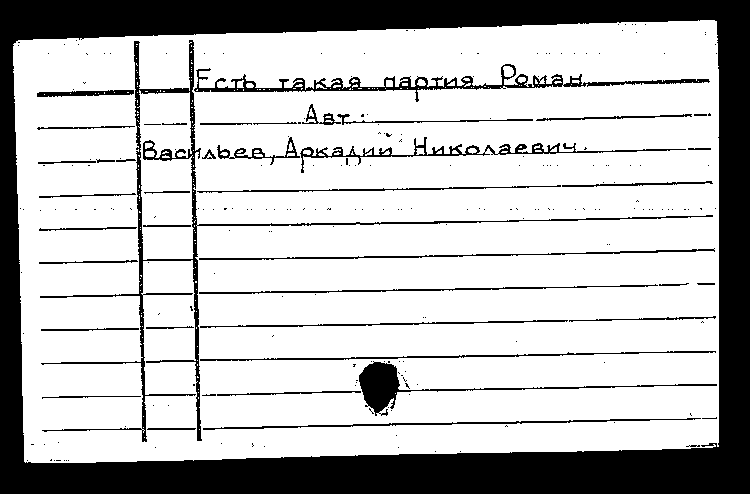 Есть такая партия. Роман
Авт.:
Васильев, Аркадий Николаевич.